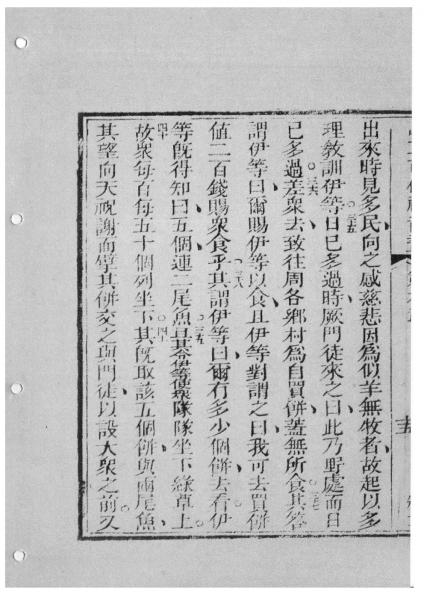 出來時見多民向之感慈悲因爲似羊無牧者故起以多
理教訓伊等○三五日已多過時厥門徒來之曰此乃野處而日
已多過○三六差衆去致往周各鄉村爲自買餅蓋無所食○三七其答
謂伊等曰爾賜伊等以食且伊等對謂之曰我可去買餅
値二百錢賜衆食乎○三八其謂伊等曰爾有多少個餅去看伊
等旣得知曰五個連二尾魚○三九且其令伊等使衆隊隊坐下綠草上○
四十故衆每百每五十個列坐下○四一其旣取該五個餅與兩尾魚
其望向天祝謝而擘其餅交之與門徒以設大衆之前○又